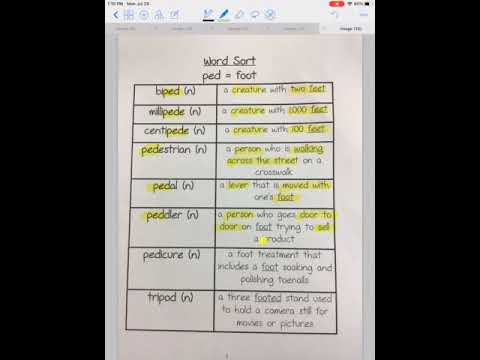 Word Sort
ped = foot
biped (n) a creature with two feet
millipede (n) a creature with 1000 feet
centipede (n) a creature with 100 feet
pedestrian (n) a person who is walking
across the street on a
crosswalk
pedal (n) a lever that is moved with
one's foot
peddler (n) a person who goes door to
door on foot trying to sell
a product
pedicure (n) a foot treatment that
includes a foot soaking and
polishing toenails
tripod (n) a three footed stand used
to hold a camera still for
movies or pictures